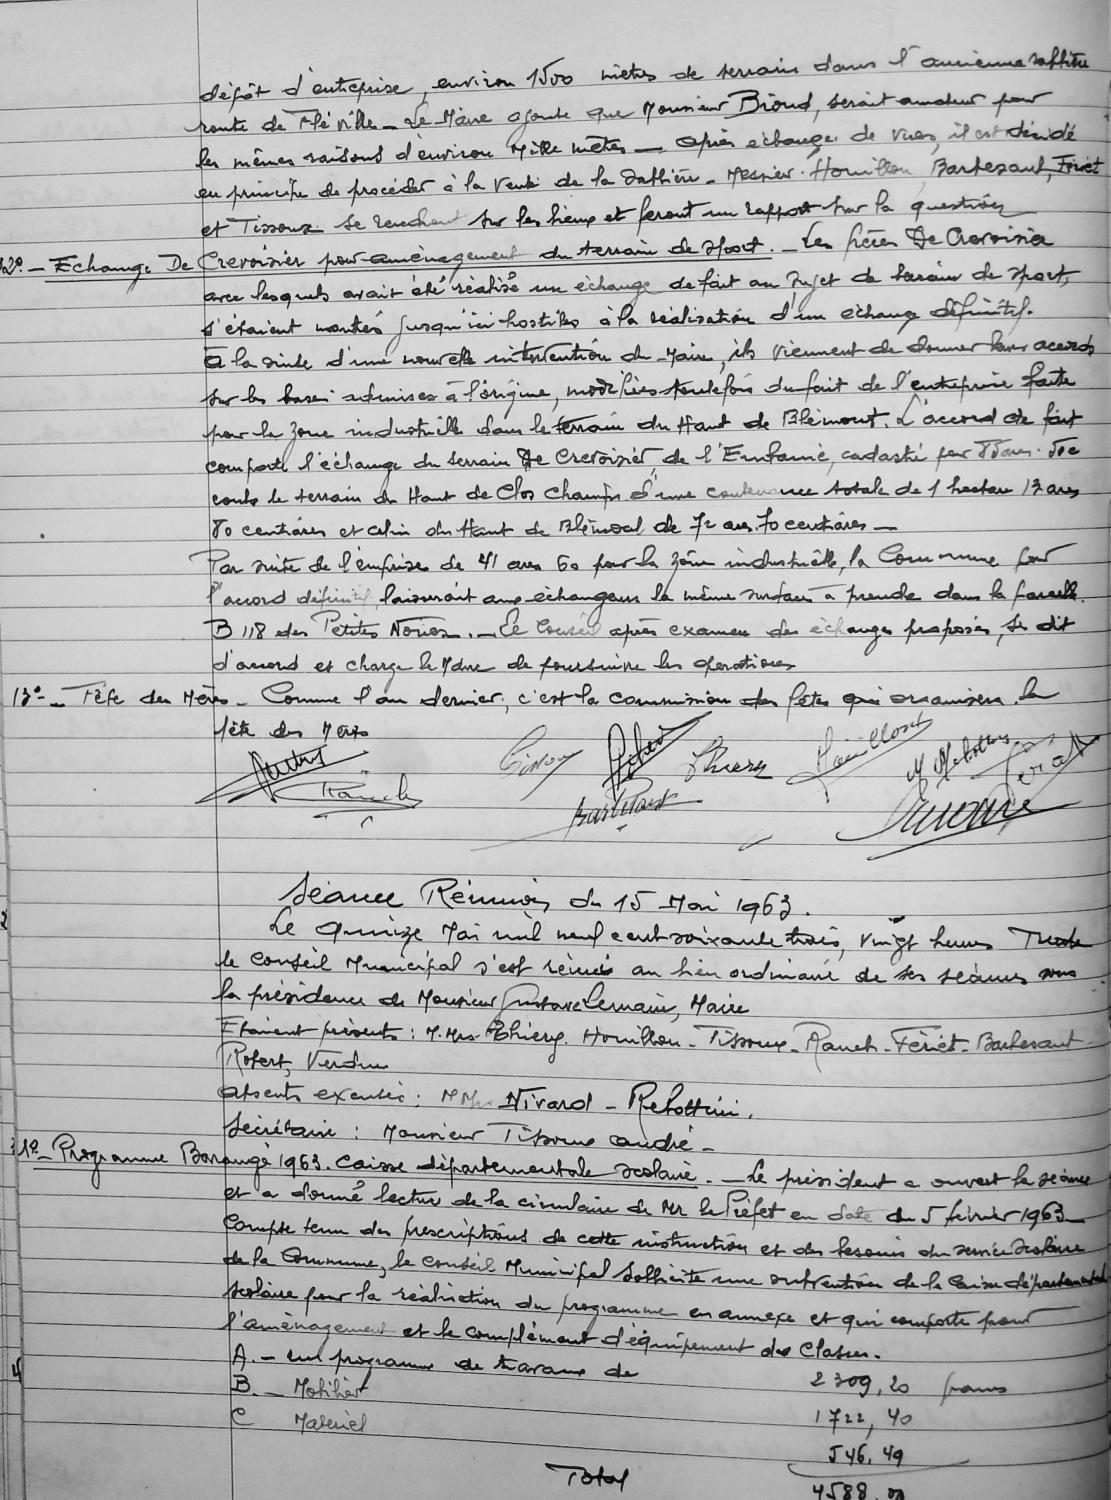 dépôt d'entreprise, environ 1500 mètres de terrain dans l'ancienne sablière
route de Fléville _ Le Maire ajoute que Monsieur Brond, serait amateur pour
les mêmes raisons d'environ Mille mètres _ Après échange de vues, il est décidé
en principe de procéder à la vente de la sablière _ Messieurs Houillon, Barbezant, Fériet
et Tissoux se rendront sur les lieux et feront un rapport sur la question
12°_ Echange De Crevoisier pour aménagement du terrain de sport. _ Les frères De Crevoisier
avec lesquels avait été réalisé un échange de fait au sujet du terrain de sport,
s'étaient montrés jusqu'ici hostiles à la réalisation d'un échange définitif.
A la suite d'une nouvelle intervention du Maire, ils viennent de donner leur accord
sur les bases admises à l'origine, modifiées toutefois du fait de l'entreprise faite
pour la zone industrielle dans le terrain du Haut de Blémont. L'accord de fait
comporte l'échange du terrain De Crevoisier, de l'Enfanié, cadastré pour
contre le terrain du Haut de Clos Champs d'une contenance totale de 1 hectare 13 ares
80 centiares et celui du Haut de Blémont de 72 ares 70 centiares _
Par suite de l'emprise de 41 ares 60 pour la zône industrielle, la Commune pour
l'accord définitif, laisserait aux échangeurs la même surface à prendre dans la parcelle
B 118 des Petites Noires. _ Le Conseil après examen des échanges proposés, se dit
d'accord et charge le Maire de poursuivre les opérations
13°_ Fête des Mères _ Comme l'an dernier, c'est la commission des fêtes qui organisera la
fête des Mères
Rauch
Thiery
Houillon
M Rebottini
Fériet
Barbezant
Séance Réunion du 15 Mai 1963.
Le Quinze Mai mil neuf cent soixante trois, vingt heures Trente
le Conseil Municipal s'est réuni au lieu ordinaire de ses séances sous
la présidence de Monsieur Gustave Lemain, Maire
Etaient présents : M.Mrs Thiery. Houillon _ Tissoux _ Rauch _ Fériet _ Barbezant _
Robert, Verdun
absents excusés : M Mrs Nivard _ Rebottini.
Secrétaire : Monsieur Tissoux André _
1°_ Programme Barangé 1963. Caisse départementale scolaire. _ Le président a ouvert la séance
et a donné lecture de la circulaire de Mr le Préfet en date du 5 février 1963 _
Compte tenu des prescriptions de cette instruction et des besoins du service scolaire
de la Commune, le Conseil Municipal sollicite une subvention de la Caisse départementale
scolaire pour la réalisation du programme en annexe et qui comporte pour
l'aménagement et le complément d'équipement des Classes.
A. _ un programme de travaux de 2309,20 francs
B. _ Mobilier 1722,40
C Matériel 546,49
Total 4588